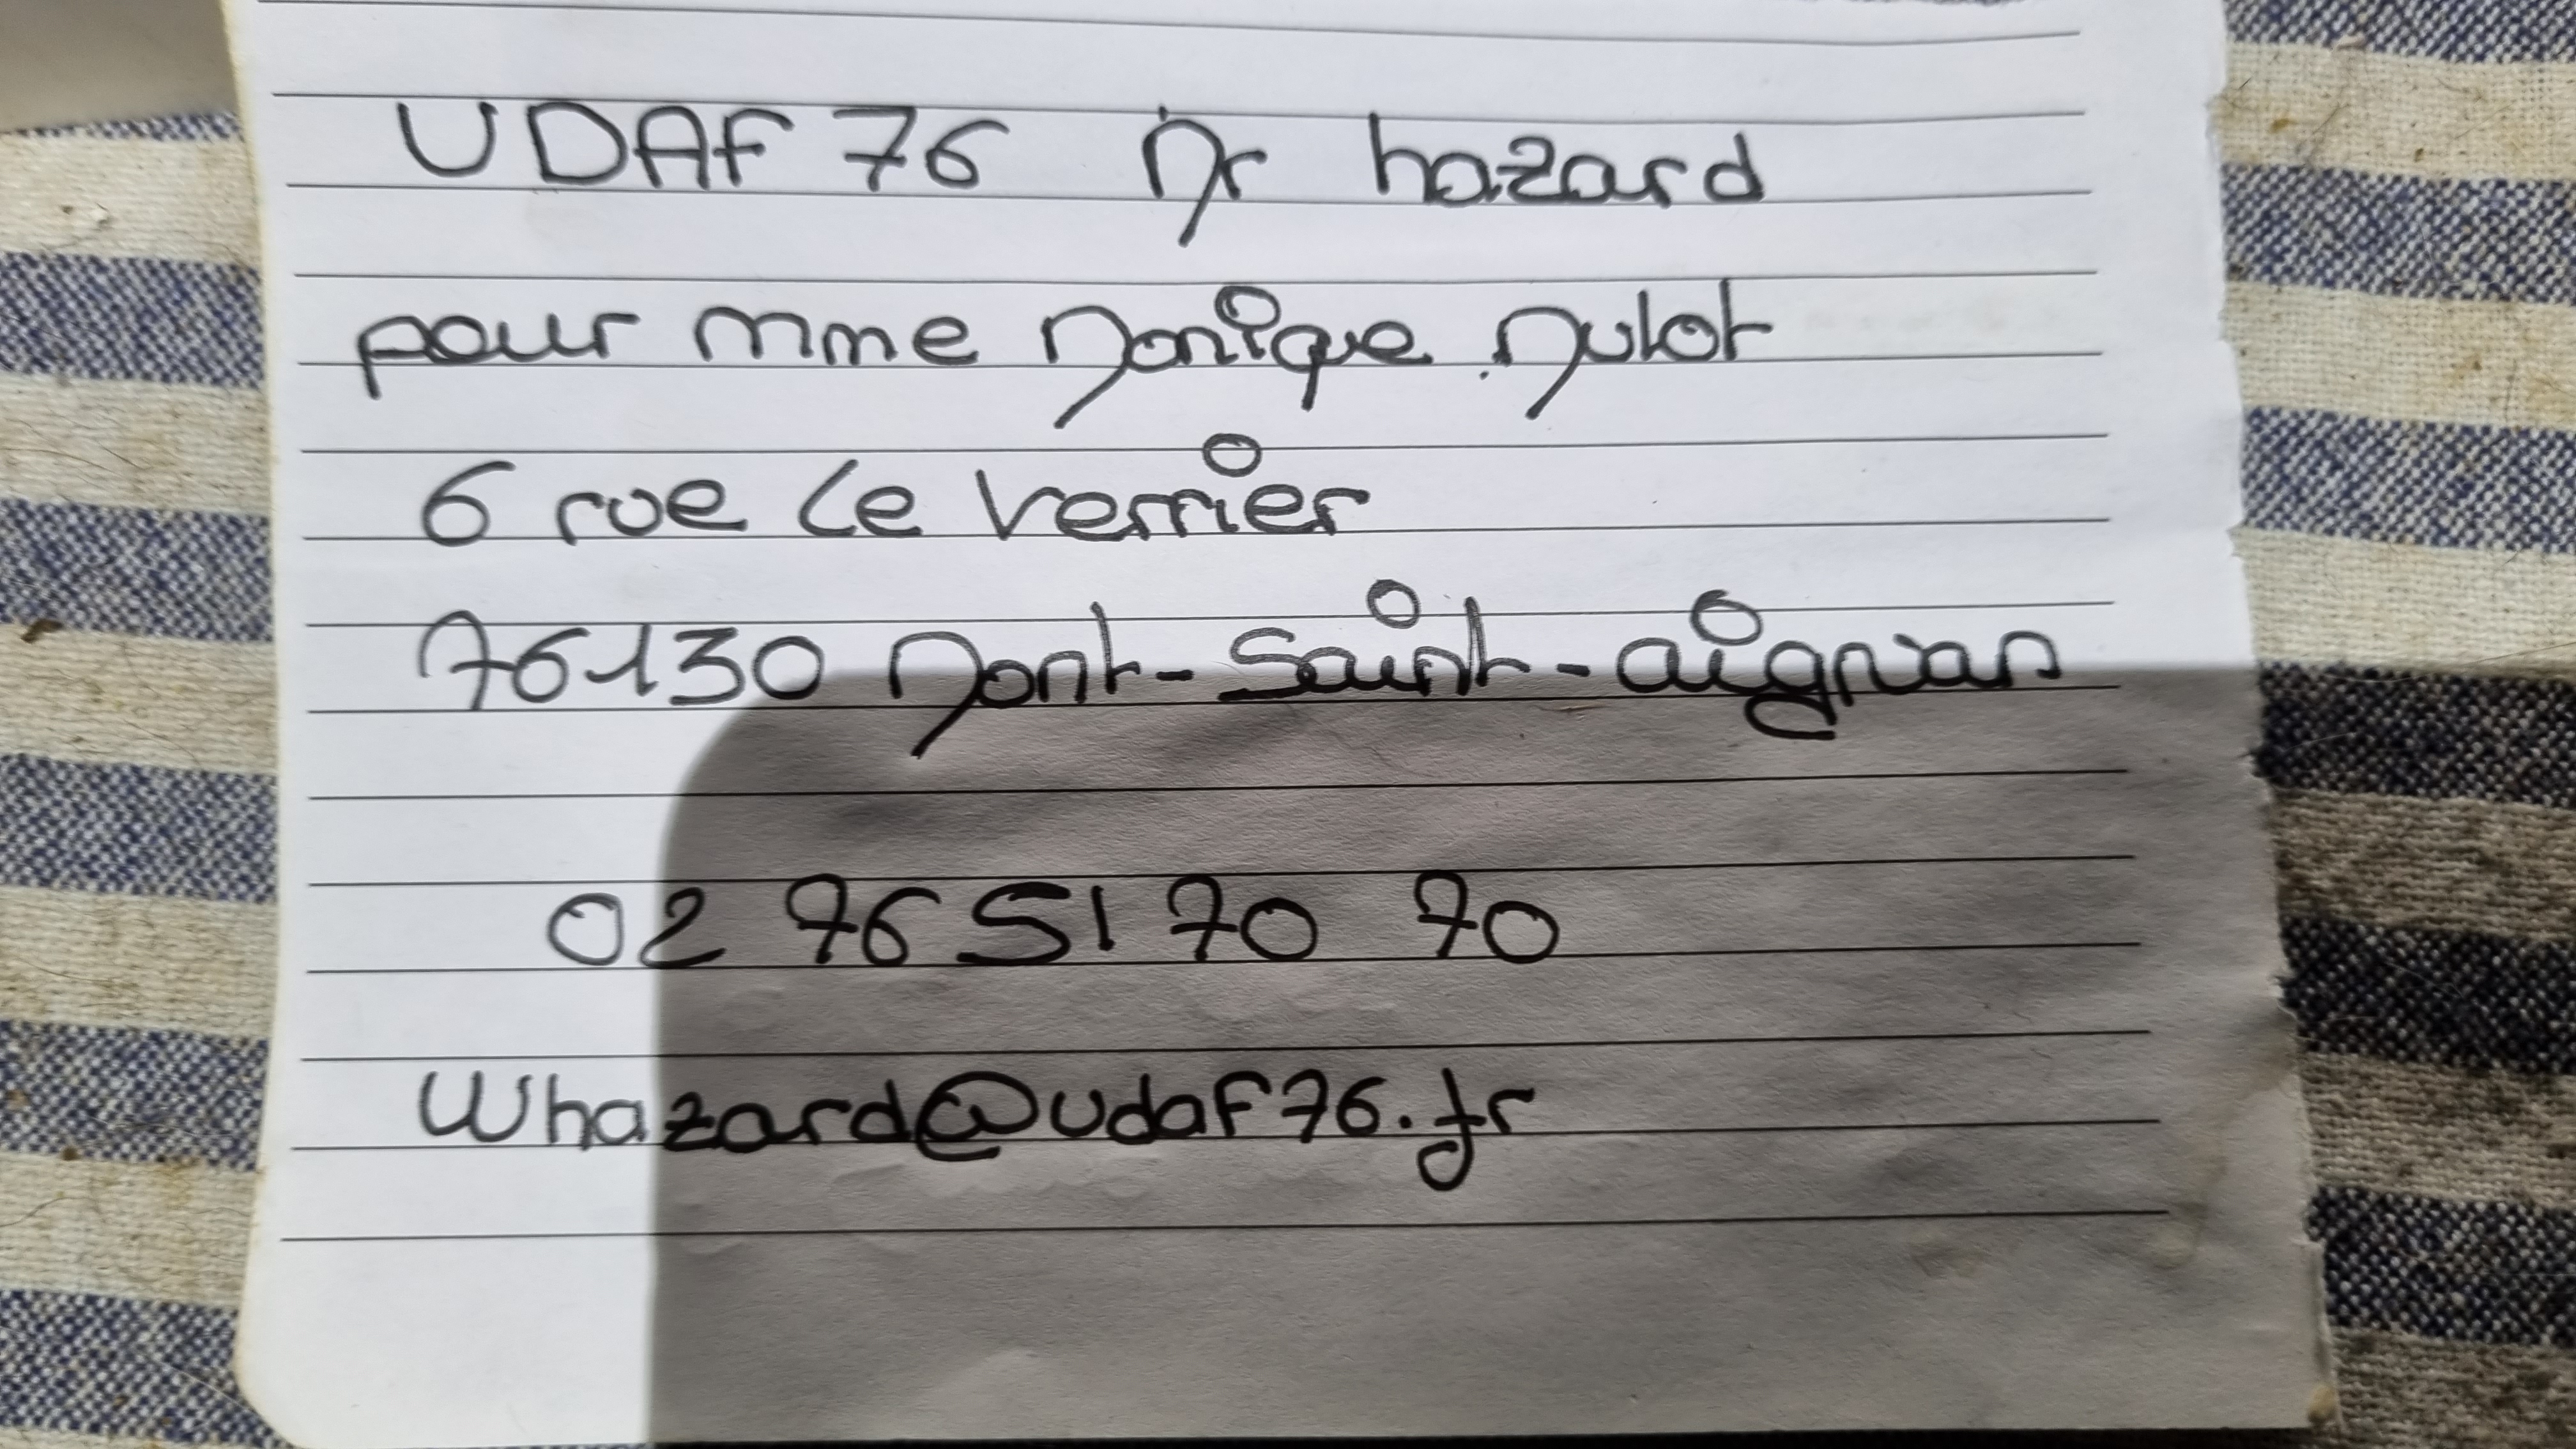 UDAF 76 Mr hazard
pour mme Monique Mulot
6 rue Le Verrier
76130 Mont-Saint-aignan
02 76 51 70 70
Whazard@udaf76.fr